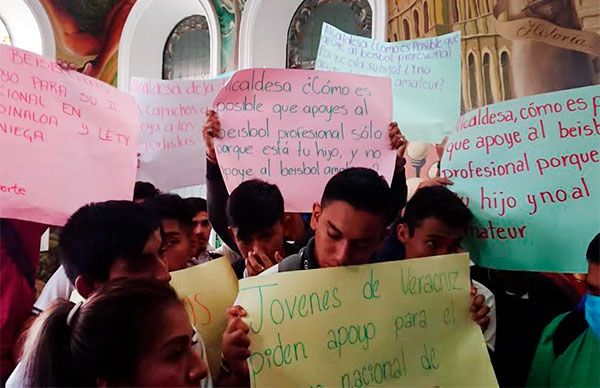 oyo para su
cional en
Sinaloa y Lety
niega
porte
ldesa deja
caprichos
oya a los
Alcaldesa ¿Cómo es
posible que apoyes al
beisbol profesional sólo
porque está tu hijo, y no
al beisbol
Alcaldesa ¿Cómo es Posible que
apoye al beisbol profesional
hijo? ¿Y no
amateur?
Alcaldesa, cómo es po
que apoye al beisb
profesional porque
hijo y no al
mateur
Historia
Jovenes de Veracruz
piden apoyo para
nacional de